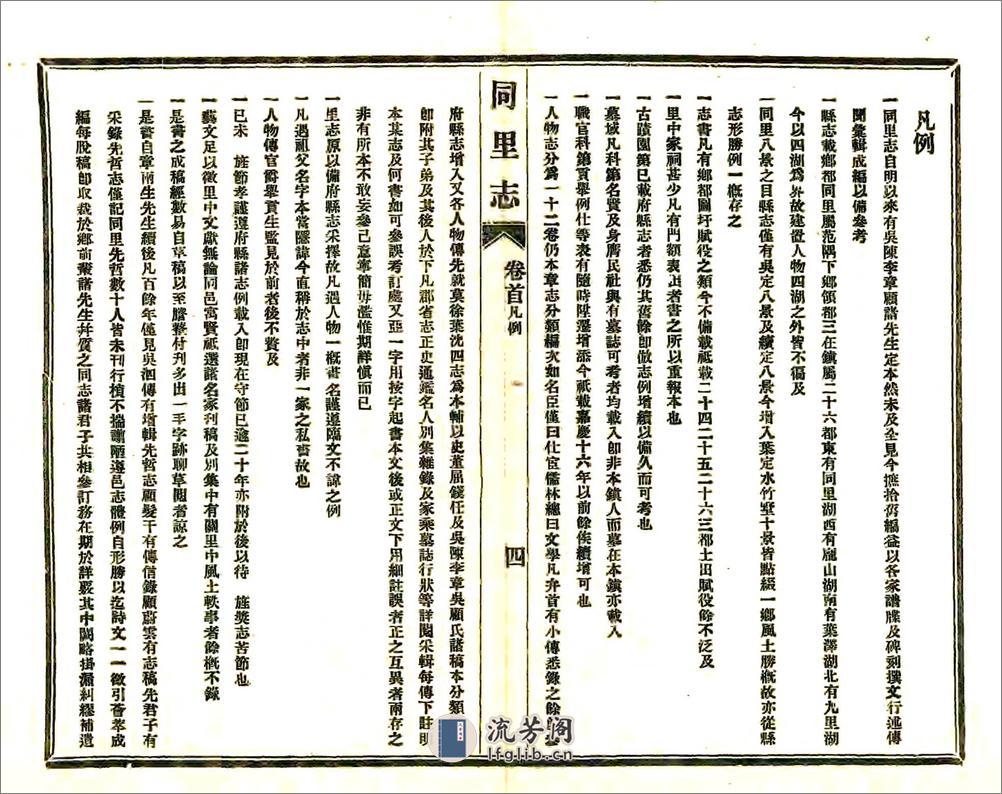 凡例
一同里志自明以來有吳陳李章顧諸先生定本然未及全見今摭拾舊編益以各家譜牒及碑刻撰文行述傳
聞彙輯成編以備參考
一縣志載鄉都同里屬范隅下鄉領都三在鎮屬二十六都東有同里湖西有龐山湖南有葉澤湖北有九里湖
今以四湖為界故建置人物四湖之外皆不備及
一同里八景之目縣志僅有吳定八景及續定八景今增入葉定水竹墅十景皆點綴一鄉風土勝概故亦從縣
志形勝例一概存之
一志書凡有鄉都圖圩賦役之類今不備載祗載二十四二十五二十六三都土田賦役餘不泛及
一里中家祠甚少凡有門額表出者書之所以重報本也
一古蹟園第已載府縣志者悉仍其舊餘卽倣志例增續以備久而可考也
一墓域凡科第名賢及身膺民社與有墓誌可考者均載入卽非本鎮人而墓在本鎮亦載入
一職官科第貢舉例仕等表有隨時陞遷增添今祗載嘉慶十六年以前餘俟續增可也
一人物志分爲一十二卷仍本章志分類編次如名臣僅曰仕宦儒林總曰文學凡弁首有小傳悉錄之餘
同里志
卷首凡例
四
府縣志增入又各人物傳先就莫徐葉沈四志爲本輔以史董屈錢任及吳陳李章吳顧氏諸稿本分類
卽附其子弟及其後人於下凡郡省志正史通鑑名人別集雜錄及家乘墓誌行狀等詳閱采輯每傳下註明
本某志及何書如可參誤考訂處又亞一字用按字起書本文後或正文下用細註誤者正之互異者兩存之
非有所本不敢妄參己意寧簡毋濫惟期詳愼而已
一里志原以備府縣志采擇故凡遇人物一概書名謹遵臨文不諱之例
一凡遇祖父名字本當隱諱今直稱於志中者非一家之私書故也
一人物傳官爵舉貢生監見於前者後不贅及
一已未　旌節孝謹遵府縣諸志例載入卽現在守節已逾二十年亦附於後以待　旌奬志苦節也
一藝文足以徵里中文獻無論同邑寓賢祗選諸名家刋稿及別集中有關里中風土軼事者餘概不錄
一是書之成稿經數易自草稿以至謄繕付刋多出一手字跡聊草閱者諒之
一是書自章兩生先生續後凡百餘年僅見吳泗傳有增輯先哲志顧髮干有傳信錄顧蔚雲有志稿先君子有
采錄先哲志僅記同里先哲數十人皆未刊行楨不揣譾陋遵邑志體例自形勝以迄詩文一一徵引薈萃成
編每脫稿卽取裁於鄉前輩諸先生幷質之同志諸君子共相參訂務在期於詳覈其中闕略掛漏糾繆補遺
流芳阁
lfglib.cn.com